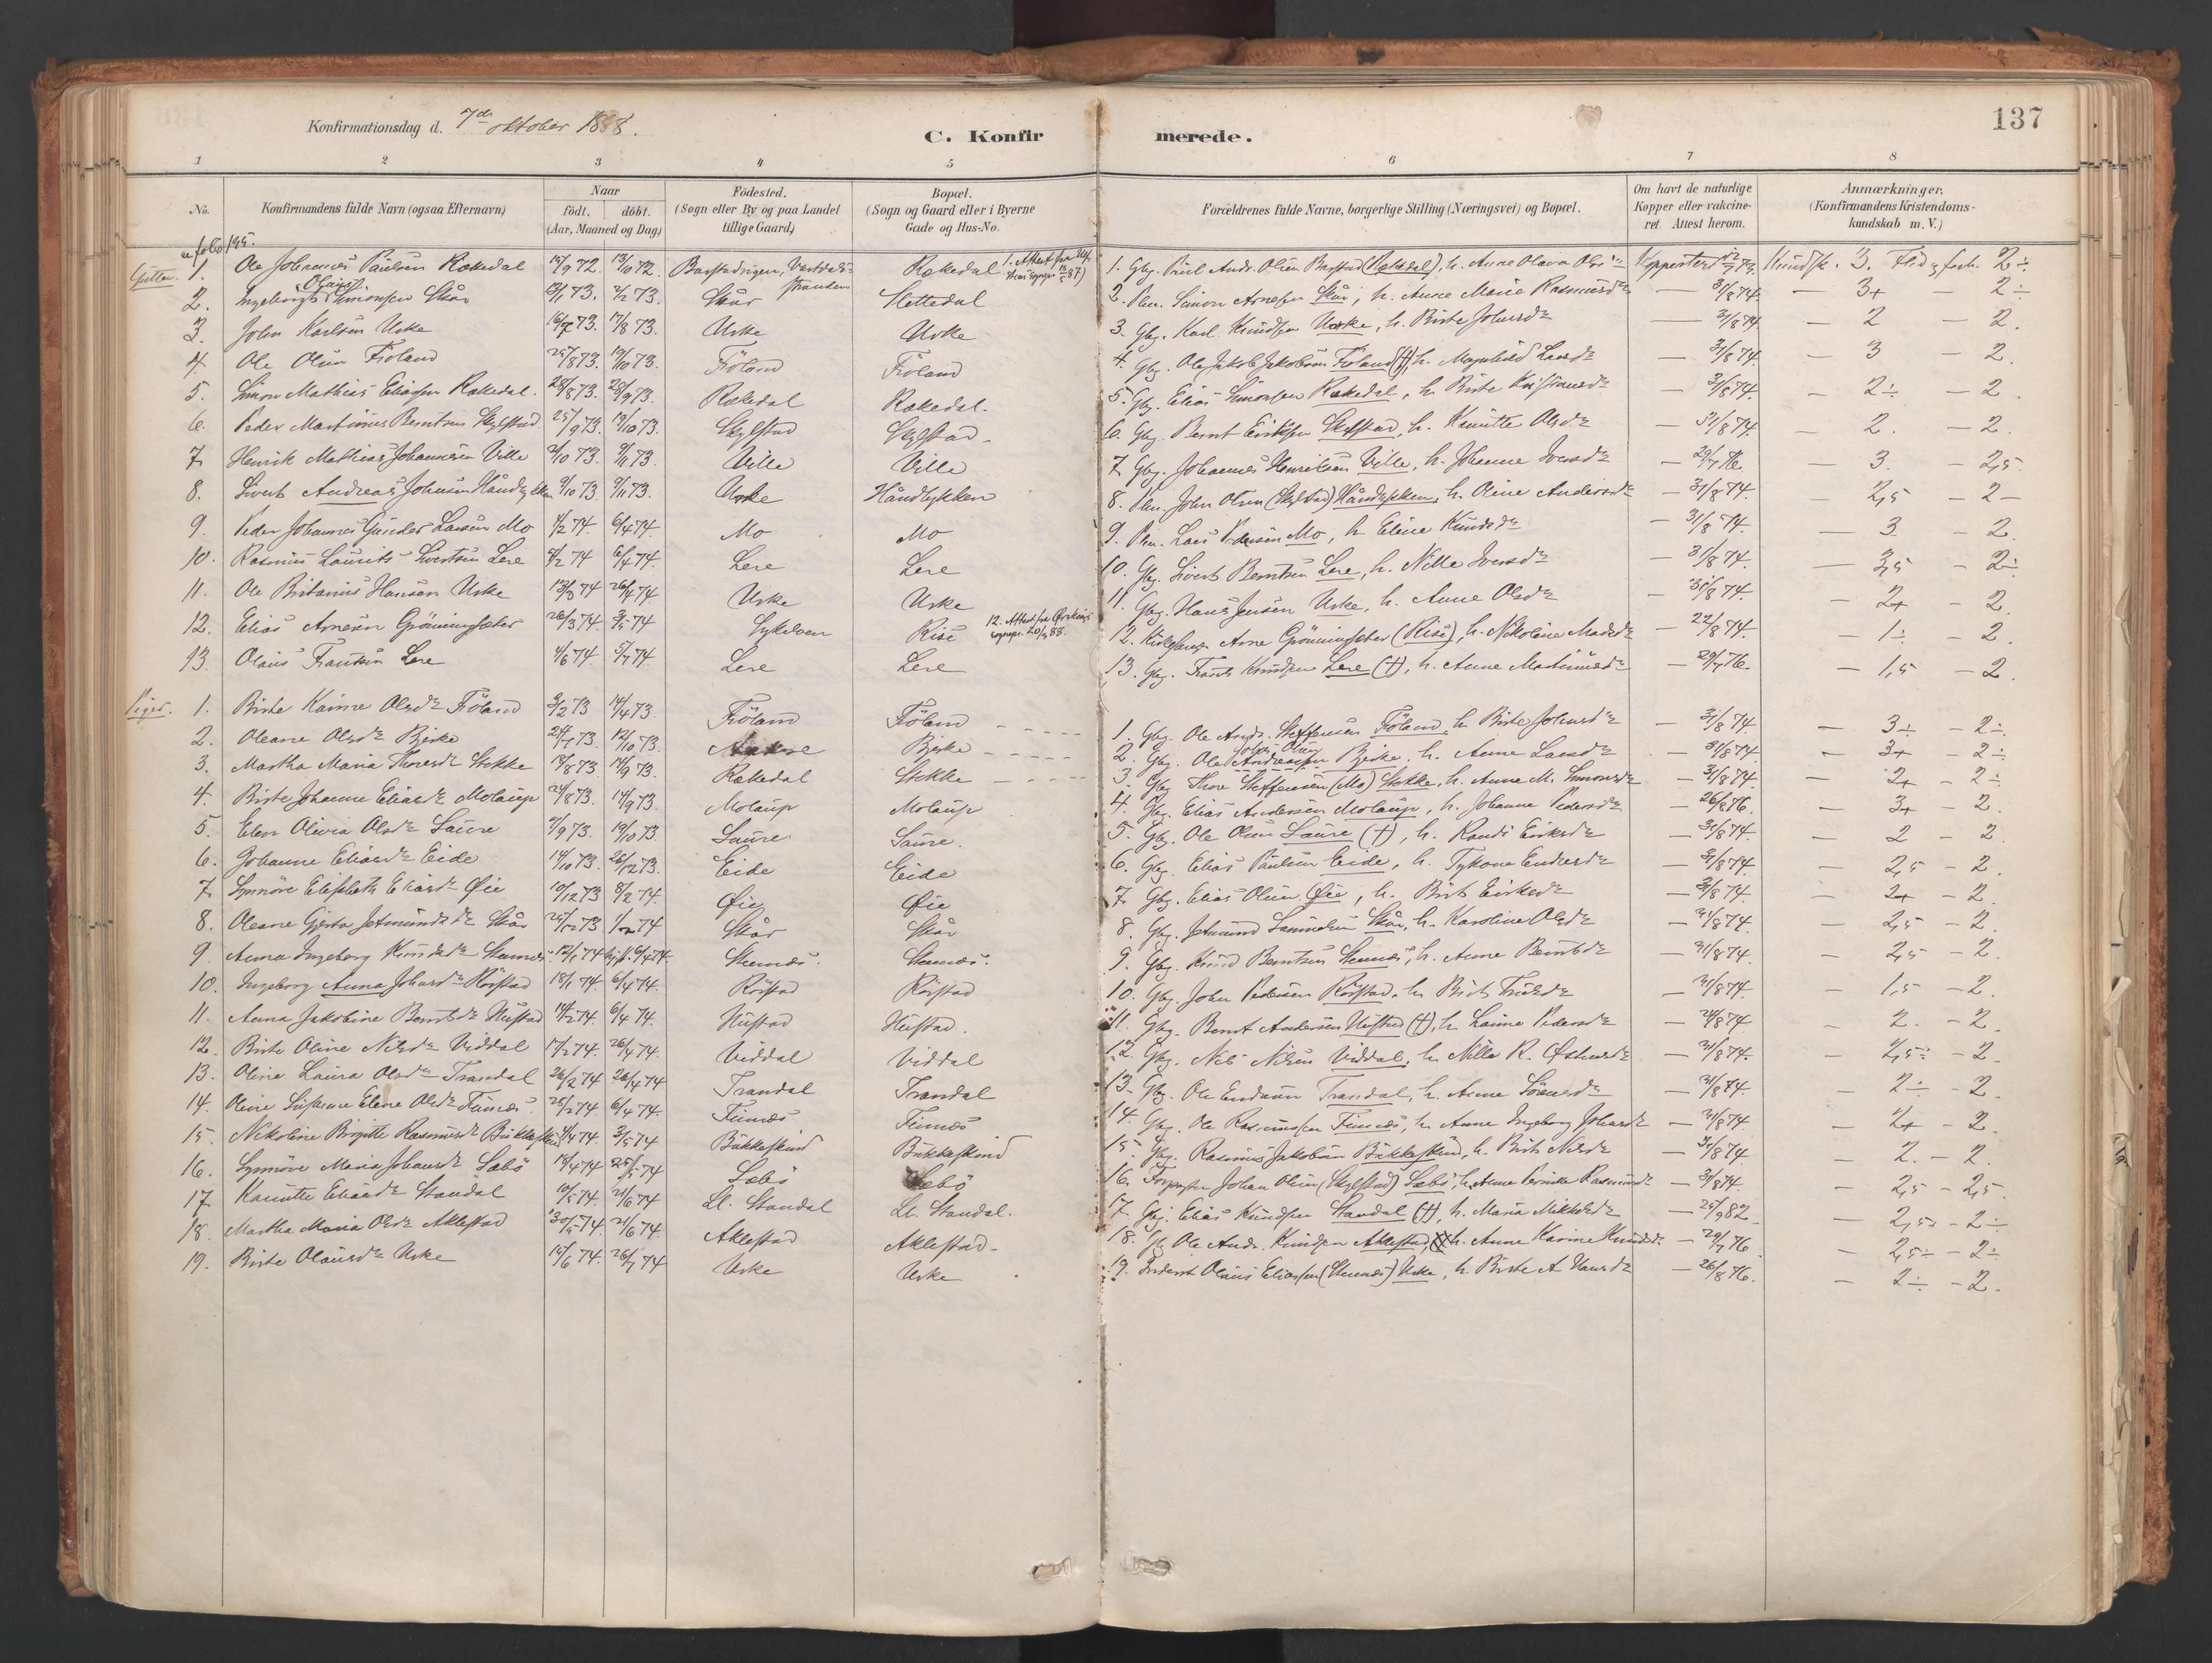 137
Konfirmationsdag d. 7de oktober 1888.
C. Konfir merede.
1 2 3 4 5 6 7 8
No. Konfirmandens fulde Navn (ogsaa Efternavn) Naar født. døbt. (Aar, Maaned og Dag) Födested. (Sogn eller By og paa Landet tillige Gaard) Bopæl. (Sogn og Gaard eller i Byerne Gade og Hus-No. Forældrenes fulde Navne, borgerlige Stilling (Næringsvei) og Bopæl. Om havt de naturlige Kopper eller vakcineret. Attest herom. Anmærkninger. (Konfirmandens Kristendomskundskab m. V.)
folio 195.
Gutter. 1. Ole Johannes Paulsen Rækedal 15/9 72. 13/10 72. Barstadvigen, Vartdalsstranden Rækedal 1. Gbg. Poul Andr. Olsen Barstad (Rækedal), h. Anne Olava Olsdr Koppeattest Kundsk. 3. Flid og forh. 2÷
2. Ingebrigt Olaus Simonsen Skår 13/1 73. 2/2 73. Skår Slettedal 2. Simon Arnesen Skår, h. Anne Marie Rasmusdr — 31/8 74. — 3+ — 2÷
3. John Karlsen Urke 16/7 73. 17/8 73. Urke Urke 3. Gbg. Karl Knudsen Urke, h. Birte Johnsdr — 31/8 74. — 2 — 2.
4. Ole Olsen Fröland 25/8 73. 19/10 73. Fröland Fröland 4. Gbg. Ole Jakob Jakobsen Fröland (†), h. Magnhild Larsdr — 31/8 74. — 3 — 2.
5. Simon Mathias Eliassen Rækedal. 28/8 73. 28/9 73. Rækedal Rækedal. 5. Gbg. Elias Simonsen Rækedal, h. Birte Kristiansdr — 31/8 74. — 2÷ — 2.
6. Peder Martinus Berntsen Skylstad 25/9 73. 19/10 73. Skylstad Skylstad 6. Gbg. Bernt Eriksen Skylstad, h. Knutte Olsdr — 31/8 74. — 2. — 2.
7. Henrik Mathias Johannesen Ville 2/10 73. 9/11 73. Ville Ville 7. Gbg. Johannes Henriksen Ville, h. Johanne Iversdr — 29/7 76. — 3. — 2,5
8. Sivert Andreas Johnsen Håndlykken 9/10 73. 9/11 73. Urke Håndlykken 8. John Olsen (Skylstad) Håndlykken, h. Oline Andersdr — 31/8 74. — 2,5 — 2
9. Peder Johannes Gunder Larsen Mo 1/2 74. 6/4 74. Mo Mo 9. Lars Pedersen Mo, h. Eline Knudsdr — 31/8 74. — 3 — 2.
10. Rasmus Laurits Sivertsen Lere 4/2 74 6/4 74. Lere Lere 10. Gbg. Sivert Berntsen Lere, h. Nille Iversdr — 31/8 74. — 3,5 — 2÷
11. Ole Bertinius Hansen Urke 13/3 74 26/4 74. Urke Urke 11. Gbg. Hans Jensen Urke, h. Anne Olsdr — 31/8 74. — 2+ — 2
12. Elias Arnesen Grönningsæter 26/3 74. 3/5 74 Sykelven Rise 12. Attest fra Ørskog 20/9 88. 12. Kirkesanger Arne Grönningsæter (Rise), h. Nikoline Madsdr — 22/8 74. — 1÷ — 2.
13. Olaus Frantsen Lere 4/6 74. 5/7 74. Lere Lere 13. Gbg. Frants Knudsen Lere (†), h. Anne Martinusdr — 29/7 76. — 1,5 — 2.
Piger. 1. Birte Karine Olsdr Fröland 3/2 73 14/4 73. Fröland Fröland 1. Gbg. Ole Andr. Steffensen Fröland, h. Birte Johnsdr — 31/8 74. — 3÷ — 2÷
2. Oleane Olsdr Bjerke 28/7 73. 12/10 73. Bjerke 2. Gbg. Ole Andreassen Bjerke, h. Anne Larsdr — 31/8 74. — 3+ — 2÷
3. Martha Maria Thoresdr Stokke 18/8 73 14/9 73. Rækedal Stokke 3. Gbg. Thore Steffensen (Mo) Stokke, h. Anne M. Simonsdr — 31/8 74. — 2+ — 2÷
4. Birte Johanne Eliasdr Molaup 24/8 73. 14/9 73. Molaup Molaup 4. Gbg. Elias Andersen Molaup, h. Johanne Pedersdr — 26/8 76. — 3+ — 2.
5. Elen Olivia Olsdr Saure 7/9 73. 19/10 73. Saure Saure. 5. Gbg. Ole Olsen Saure (†), h. Randi Eriksdr — 31/8 74. — 2 — 2.
6. Johanne Eliasdr Eide 14/10 73. 26/12 73. Eide Eide 6. Gbg. Elias Paulsen Eide, h. Endresdr — 31/8 74. — 2,5 — 2.
7. Synnöve Elisabeth Eliasdr Øie 10/12 73 8/2 74. Øie Øie 7. Gbg. Elias Olsen Øie, h. Brit Eriksdr — 31/8 74. — 2+ — 2.
8. Oleane Gjerta Jetmundsdr Skår 25/12 73. 74 Skår Skår 8. Gbg. Jetmund Samuelsen Skår, h. Karoline Olsdr — 31/8 74. — 2,5 — 2.
9. Anna Ingeborg Knudsdr Stennes 12/1 74 6/4 74. Stennes. Stennes. 9. Gbg. Knud Berntsen Stennes, h. Anne Berntsdr — 31/8 74. — 2,5 — 2.
10. Ingeborg Anna Johnsdr Rörstad 18/1 74. 6/4 74. Rörstad Rörstad 10. Gbg. John Pedersen Rörstad, h. Brit — 31/8 74. — 1,5 — 2.
11. Anna Jakobine Berntsdr Hustad 14/2 74. 6/4 74. Hustad Hustad. 11. Gbg. Bernt Andersen Hustad (†), h. Laura Pedersdr — 28/8 74. — 2. — 2.
12. Birte Oline Nilsdr Viddal 17/2 74. 26/4 74. Viddal Viddal 12. Gbg. Nils Nilsen Viddal, h. Nille R. — 31/8 74. — 2,5÷ — 2.
13. Oline Laura Olsdr Trandal 26/2 74 26/4 74 Trandal Trandal 13. Gbg. Ole Endresen Trandal, h. Anne — 31/8 74. — 2÷ — 2.
14. Oline Susanne Elene Olsdr Finnes 25/2 74 6/4 74. Finnes Finnes 14. Gbg. Ole Rasmussen Finnes, h. Anne Ingeborg — 31/8 74. — 2+ — 2.
15. Nikoline Birgitte Rasmusdr Bukkeskind 4/4 74. 3/5 74 Bukkeskind Bukkeskind 15. Gbg. Rasmus Jakobsen Bukkeskind, h. Brit Nilsdr — 31/8 74. — 2. — 2.
16. Synnöve Maria Johansdr Sæbö 18/4 74 25/5 74 Sæbö Sæbö 16. Johan Olsen (Skylstad) Sæbö, h. Anne Rasmusdr — 31/8 74. — 2,5 — 2,5.
17. Knutte Eliasdr Standal 10/5 74. 21/6 74 Ll. Standal Ll. Standal. 17. Gbg. Elias Knudsen Standal (†), h. Maria Mikkelsdr — 25/9 82. — 2,5÷ — 2÷
18. Martha Maria Olsdr Aklestad 30/5 74. 21/6 74. Aklestad Aklestad. 18. Gbg. Ole Andr. Knudsen Aklestad, h. Anne Karine Knudsdr. — 29/7 76 — 2,5÷ — 2÷
19. Birte Olausdr Urke 19/6 74. 26/7 74 Urke Urke 19. Inderst Olaus Eliassen (Stennes) Urke, h. Birte A Hansdr — 26/8 76. — 2÷ — 2.